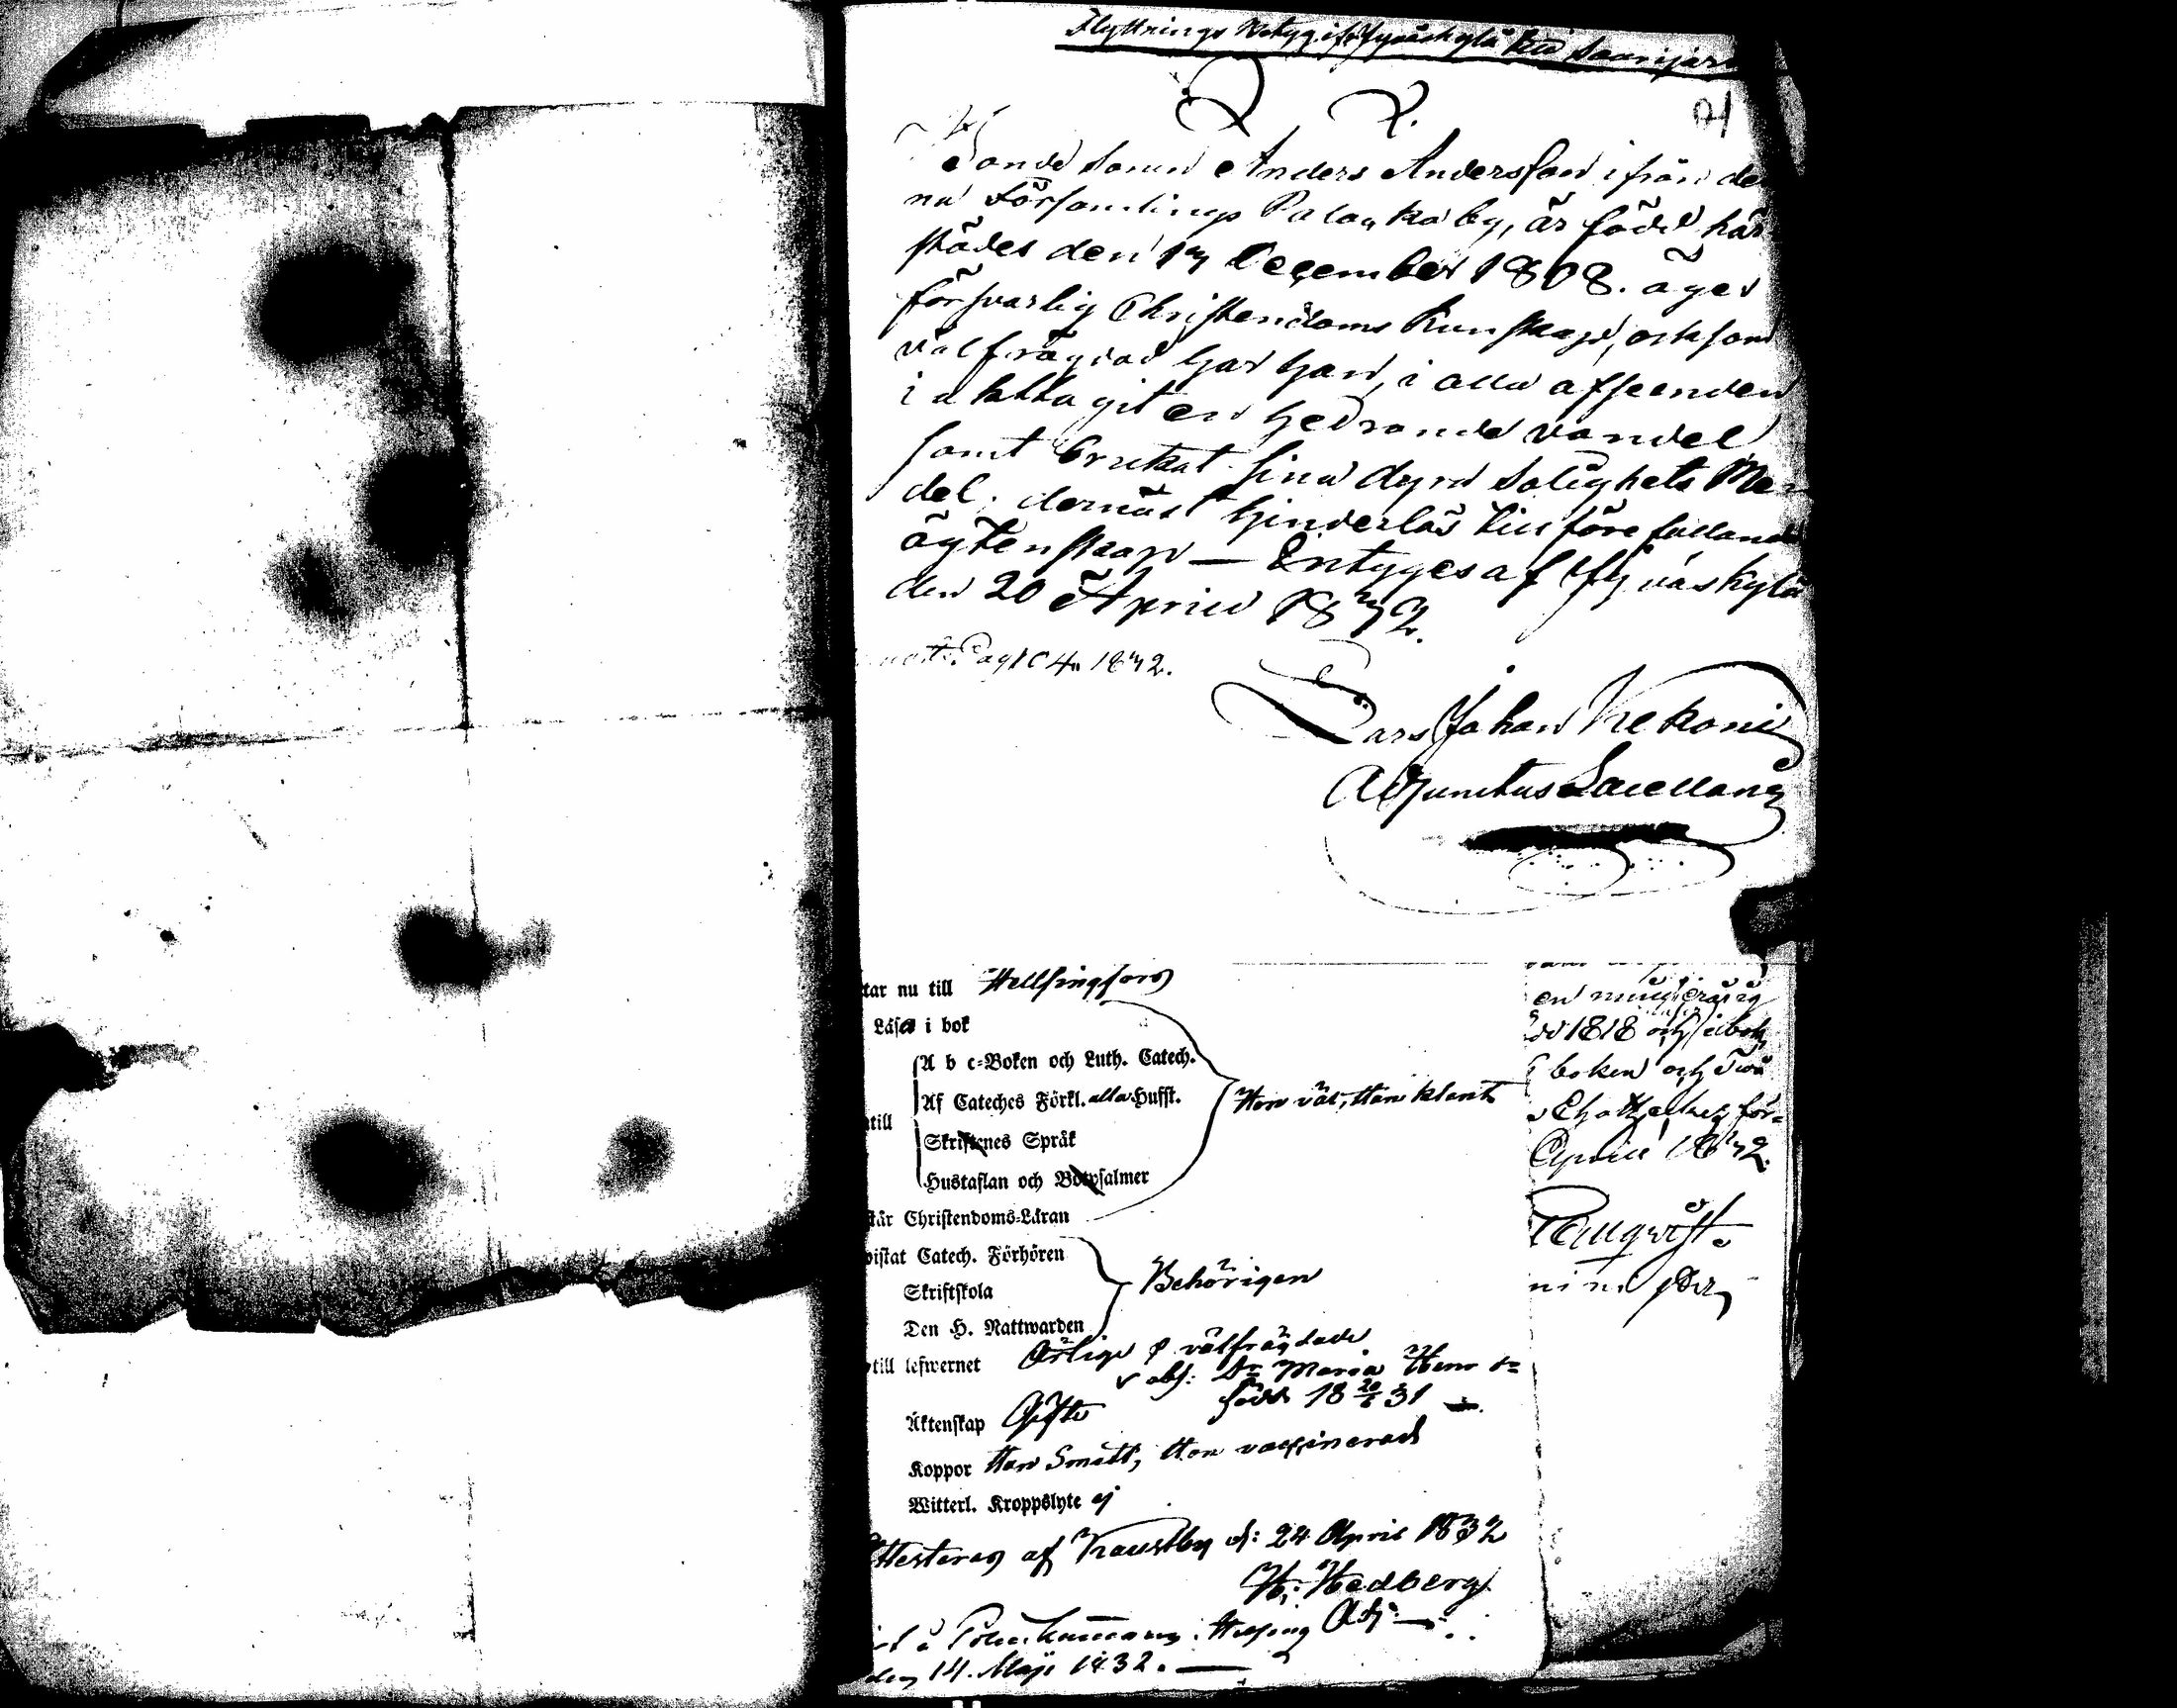 Flyttnings Betyg ifr. Jyväskylä till Saarijär
21
Bonde Sonen Anders Andersson ifrån den
na Församlings Palocka by, är född här
städes den 17 December 1808. äger
försvarlig Christendoms Kunskap, och som
välfrägdad har han, i alla afseenden
iakttagit en hedrande vandel
samt brukat sina dyra Salighets Me
del; dernäst hinderlös till förefallande
ägtenskap — Intygas af Jyväskylä
den 20 April 1832.
Pag 104 1832.
Lars Johan Kekoni
Adjunctus Sacellany
tar nu till Hellsingfors
Läsa i bok
A b c-Boken och Luth. Catech.
Af Cateches Förkl. alla Husst.
Hon väl, Han klent
till
Skriftenes Språk
Hustaflan och Botpsalmer
står Christendoms-Läran
vistat Catech. Förhören
Skriftskola
Behörigen
Den H. Nattwarden
till lefwernet Ärlige & välfrägdade
v abs: Dr Maria Henr dr
född 18 20/6 31
Äktenskap Gifte
Koppor Han Smått, Hon vaccinerad
Witterl. Kroppslyte ej
Attesteras af Kaustby d: 24 April 1832
H. Hedberg
Adj:
i Polis kammaren i Helsing
den 14 Maji 1832.
en
1818 och
boken och Två
för-
April 1832.